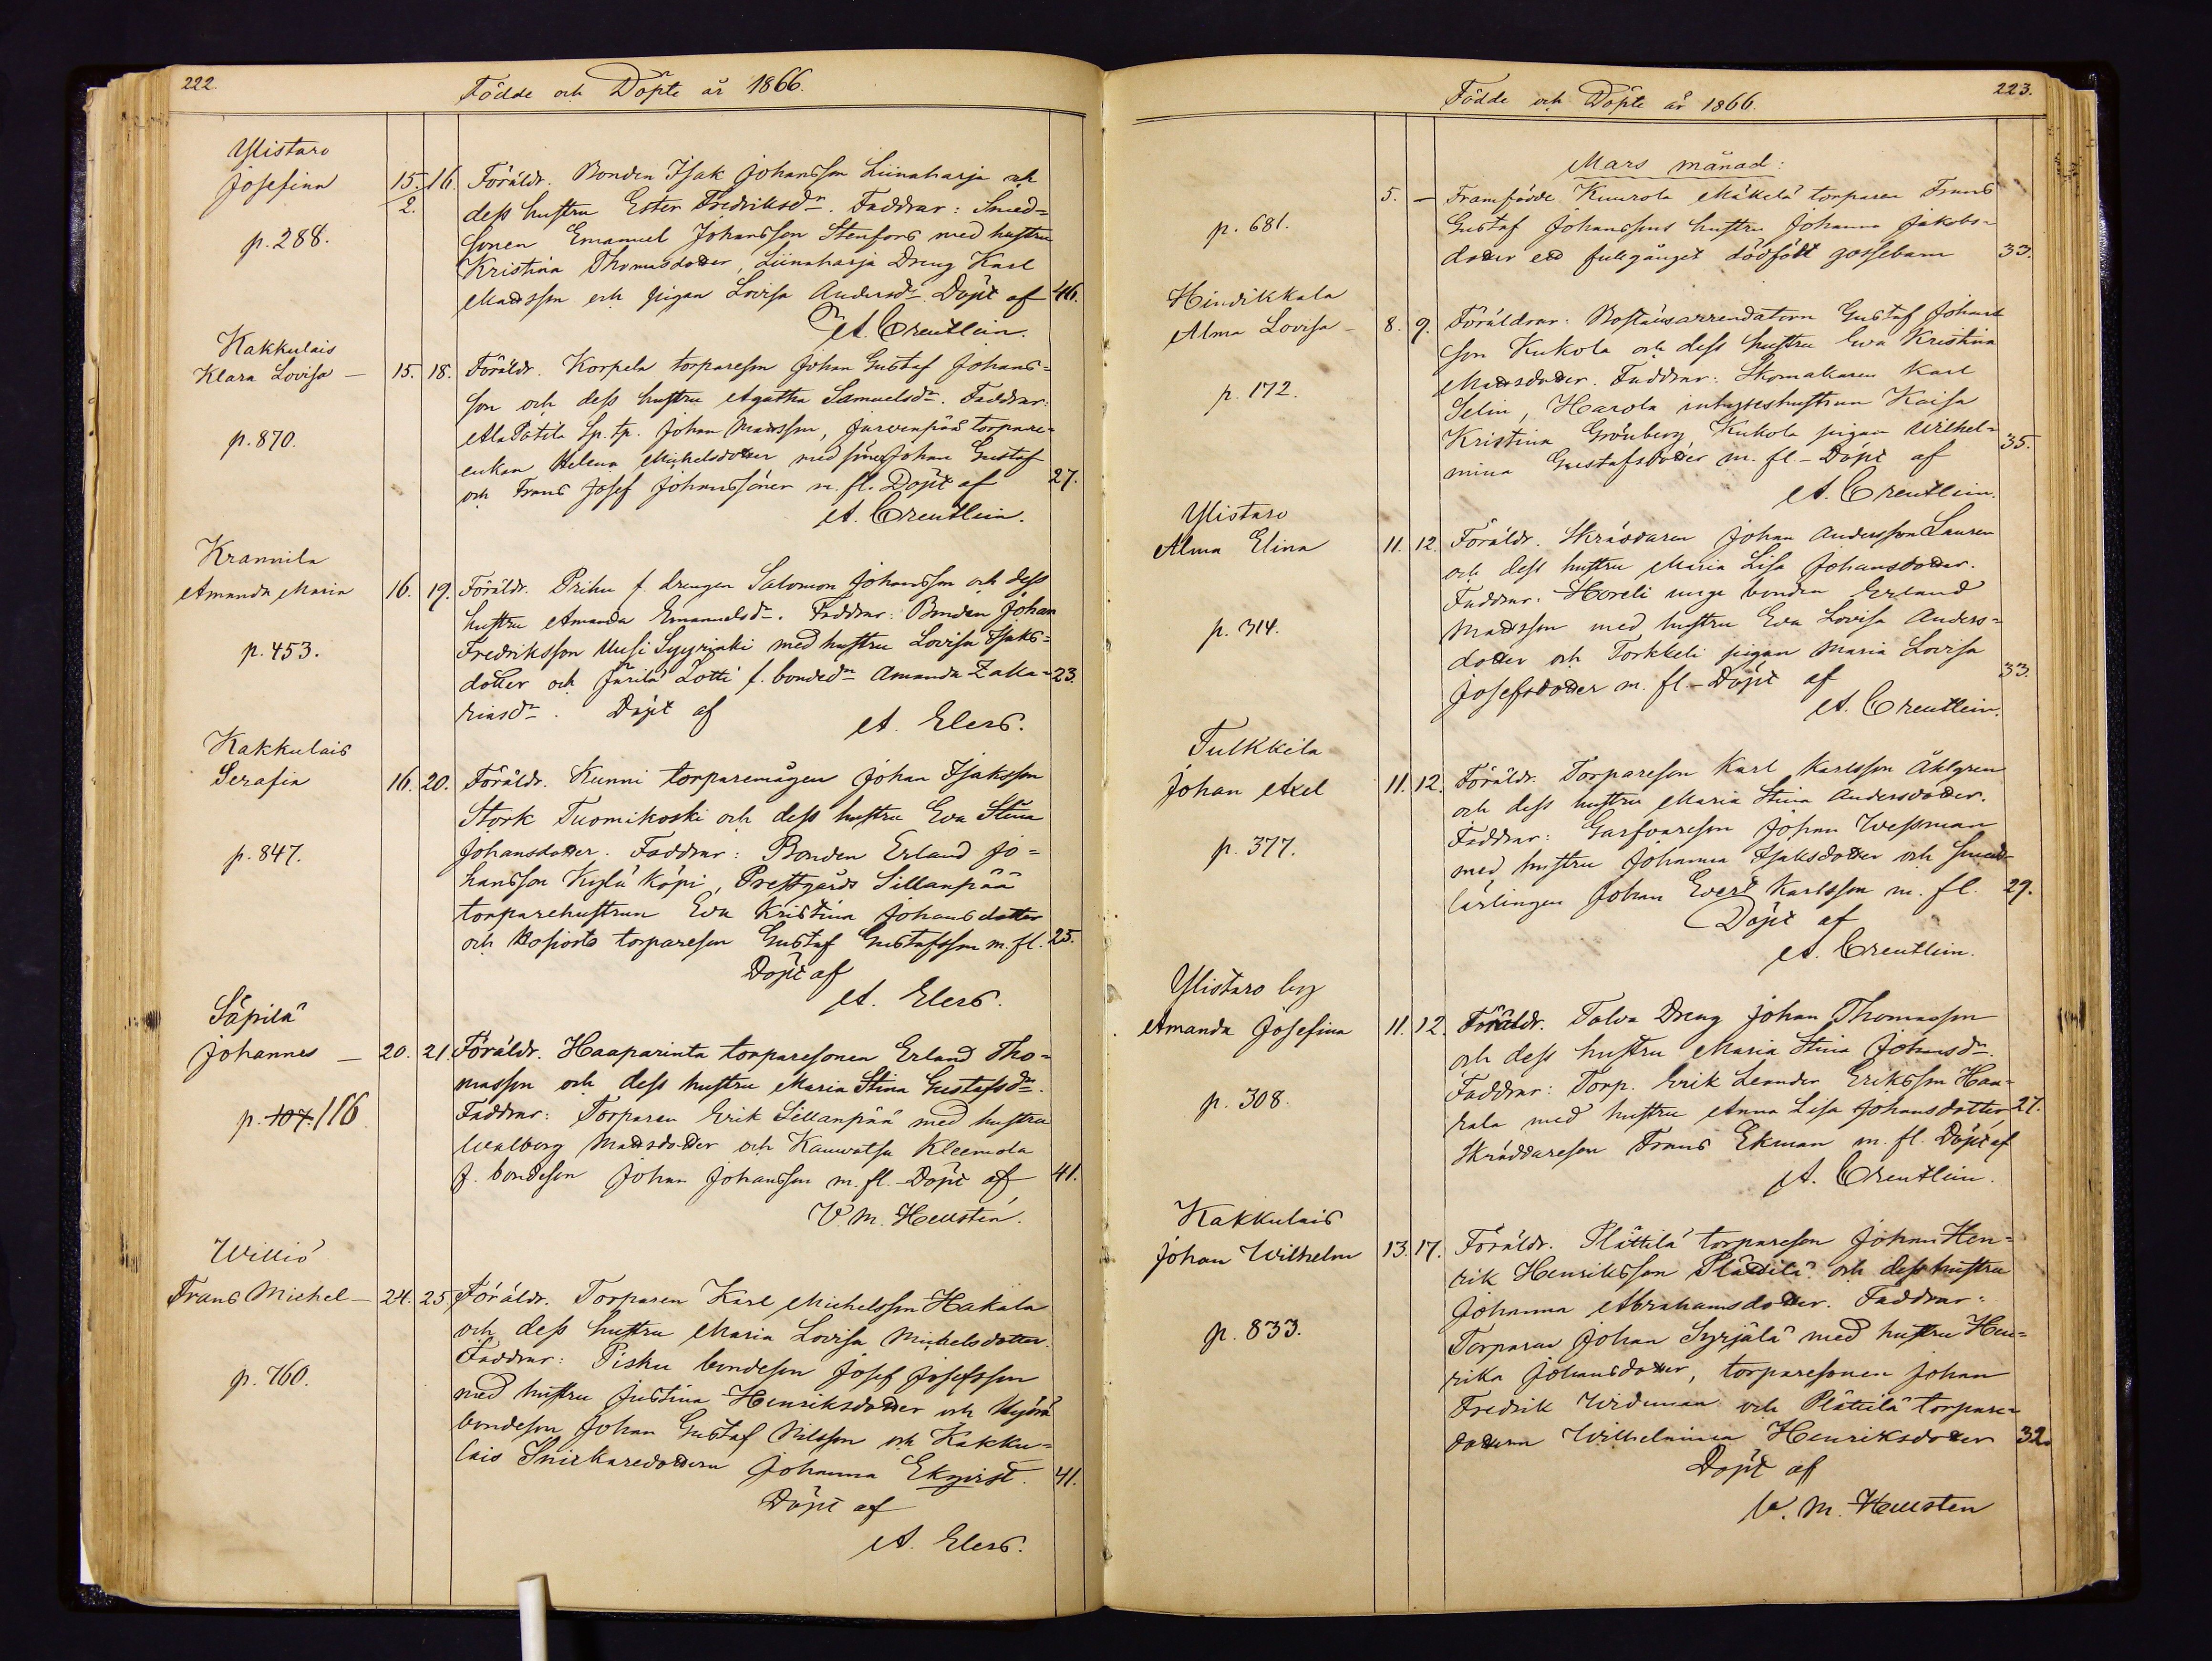 222.
Födde och Döpte år 1866.
Ylistaro
Josefina 15./2. 16. Föräldr. Bonden Isak Johansson Liinaharja och
dess hustru Ester Fredriksdr. Faddrar: Smed-
p. 288.
sonen Emanuel Johansson Stenfors med hustru
Kristina Thomasdotter, Liinaharja Dreng Karl
Mattsson och pigan Lovisa Andersdr. Döpt af 46.
A. Creutlein.
Kakkulais
Klara Lovisa — 15. 18. Föräldr. Korpela torpareson Johan Gustaf Johans-
son och dess hustru Agatha Samuelsdr. Faddrar:
p. 870.
Ala Pätilä Sp. tp. Johan Mattsson, Järvenpää torpare-
enkan Helena Michelsdotter med söner Johan Gustaf
och Frans Josef Johanssöner m. fl. Döpt af 27.
A. Creutlein.
Krannila
Amanda Maria 16. 19. Föräldr. Prihu f. drengen Salomon Johansson och dess
hustru Amanda Emanuelsdr. Faddrar: Bonden Johan
p. 453.
Fredriksson Uusi Syyrjäki med hustru Lovisa Isaks-
dotter och Jurilä Lotti f. bondedr Amanda Zaka- 23.
riasdr. Döpt af
A. Elers.
Kakkulais
Serafia 16. 20. Föräldr. Kunni torparemågen Johan Isaksson
Stork Tuomikoski och dess hustru Eva Stina
p. 847.
Johansdotter. Faddrar: Bonden Erland Jo-
hansson Kylä Köpi, Prestgårds Sillanpää
torparehustrun Eva Kristina Johansdotter
och torpareson Gustaf Gustafsson m. fl. 25.
Döpt af
A. Elers.
Säpilä
Johannes — 20. 21. Föräldr. Haaparinta torparesonen Erland Tho-
masson och dess hustru Maria Stina Gustafsdr.
p. 107. 116
Faddrar: Torparen Erik Sillanpää med hustru
Walborg Mattsdotter och Kauwatsa Kleemola
f. bondeson Johan Johansson m. fl. — Döpt af 41.
V. M. Hellstén.
Williö
Frans Michel — 24. 25. Föräldr. Torparen Karl Michelsson Hakala
och dess hustru Maria Lovisa Michelsdotter.
p. 760.
Faddrar: Pisku bondeson Josef Josefsson
med hustru Justina Henriksdotter och
bondeson Johan Gustaf Nilsson och Kakku-
lais Snickaredottern Johanna Ekqvist. 41.
Döpt af
A. Elers.
Födde och Döpte år 1866.
223.
Mars månad:
5. — Framfödde Kuurola Mäkelä torparen Frans
p. 681.
Gustaf Johanssons hustru Johanna Jakobs-
dotter ett fullgånget dödfödt gossebarn 33.
Hindikkala
Alma Lovisa — 8. 9. Föräldrar: Bostäusarrendatorn Gustaf Johans
son Kukola och dess hustru Eva Kristina
p. 172.
Mattsdotter. Faddrar: Skomakaren Karl
Selin, Harola inhyseshustrun Kaisa
Kristina Grönberg, Kukola pigan Wilhel-
mina Gustafsdotter m. fl. — Döpt af 35.
A. Creutlein.
Ylistaro
Alma Elina 11. 12. Föräldr. Skräddaren Johan Andersson Lauren
och dess hustru Maria Lisa Johansdotter.
p. 314.
Faddrar: Horeli unge bonden Erland
Mattsson med hustru Eva Lovisa Anders-
dotter och Torkkeli pigan Maria Lovisa
Josefsdotter m. fl. — Döpt af 33.
A. Creutlein.
Tulkkila
Johan Axel 11. 12. Föräldr. Torpareson Karl Karlsson Åhlgren
och dess hustru Maria Stina Andersdotter.
p. 377.
Faddrar: Garfvareson Johan Wessman
med hustru Johanna Isaksdotter och Smeds-
lärlingen Johan Evert Karlsson m. fl. 29.
Döpt af
A. Creutlein.
Ylistaro by
Amanda Josefina 11. 12. Föräldr. Talva Dreng Johan Thomasson
och dess hustru Maria Stina Johansdr.
p. 308.
Faddrar: Torp. Erik Leander Eriksson Haa-
rala med hustru Anna Lisa Johansdotter 27.
Skräddareson Frans Ekman m. fl. Döpt af
A. Creutlein.
Kakkulais
Johan Wilhelm 13. 17. Föräldr. Plättilä torpareson Johan Hen-
rik Henriksson Plättilä och dess hustru
p. 833.
Johanna Abrahamsdotter. Faddrar:
Torparen Johan Syrjälä med hustru Hen-
rika Johansdotter, torparesonen Johan
Fredrik Widman och Plättilä torpare-
dottern Wilhelmina Henriksdotter 32.
Döpt af
V. M. Hellsten